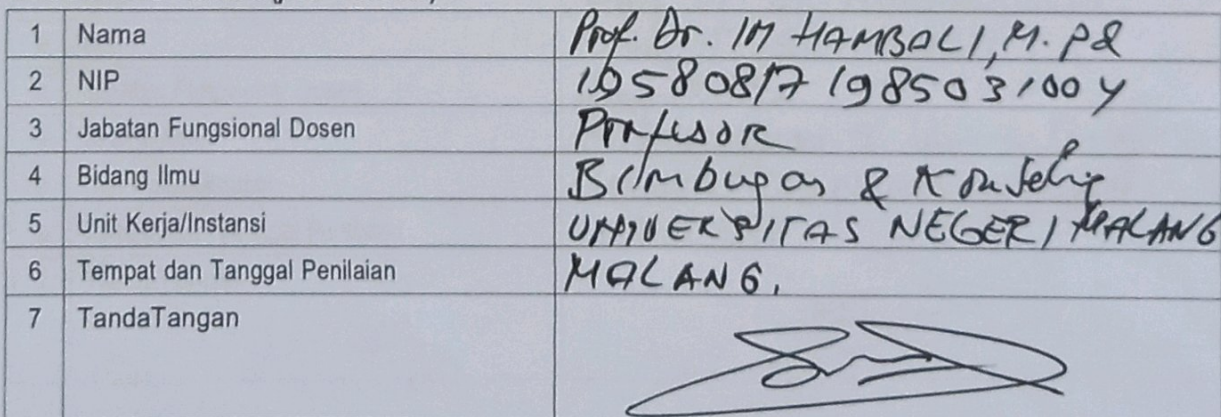 1 Nama Prof. Dr. IM HAMBALI, M. Pd
2 NIP 19580817 198503 1 004
3 Jabatan Fungsional Dosen Profesor
4 Bidang Ilmu Bimbingan & Konseling
5 Unit Kerja/Instansi UNIVERSITAS NEGERI MALANG
6 Tempat dan Tanggal Penilaian MALANG,
7 TandaTangan